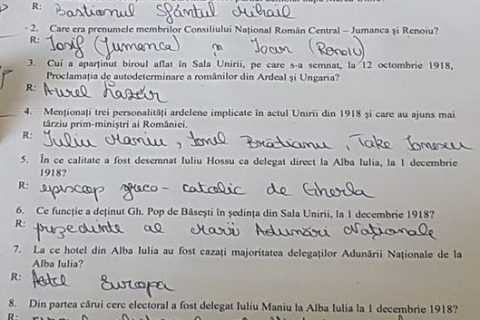 R: Bastionul Sfântul Mihail
2. Care erau prenumele membrilor Consiliului Național Român Central – Jumanca și Renoiu?
R: Iosif (Jumanca) și Ioan (Renoiu)
3. Cui a aparținut biroul aflat în Sala Unirii, pe care s-a semnat, la 12 octombrie 1918,
Proclamația de autodeterminare a românilor din Ardeal și Ungaria?
R: Aurel Lazăr
4. Menționați trei personalități ardelene implicate în actul Unirii din 1918 și care au ajuns mai
târziu prim-miniștri ai României.
R: Iuliu Maniu, Ionel Bratianu, Take Ionescu
5. În ce calitate a fost desemnat Iuliu Hossu ca delegat direct la Alba Iulia, la 1 decembrie
1918?
R: episcop greco-catolic de Gherla
6. Ce funcție a deținut Gh. Pop de Băsești în ședința din Sala Unirii, la 1 decembrie 1918?
R: președinte al Marii Adunări Naționale
7. La ce hotel din Alba Iulia au fost cazați majoritatea delegaților Adunării Naționale de la
Alba Iulia?
R: Hotel Europa
8. Din partea cărui cerc electoral a fost delegat Iuliu Maniu la Alba Iulia la 1 decembrie 1918?
R: